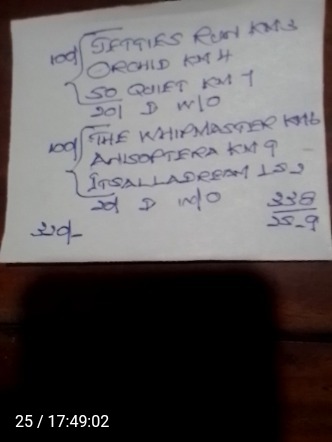 100/ JETTIES RUN KM3
ORCHID KM 4
SO QUIET KM 1
20/ D W/O
100/ THE WHIPMASTER KM6
ANISOPTERA KM 9
ITSALLADREAM LS 2
20/ D W/O
320/-
338
25-9
25 / 17:49:02